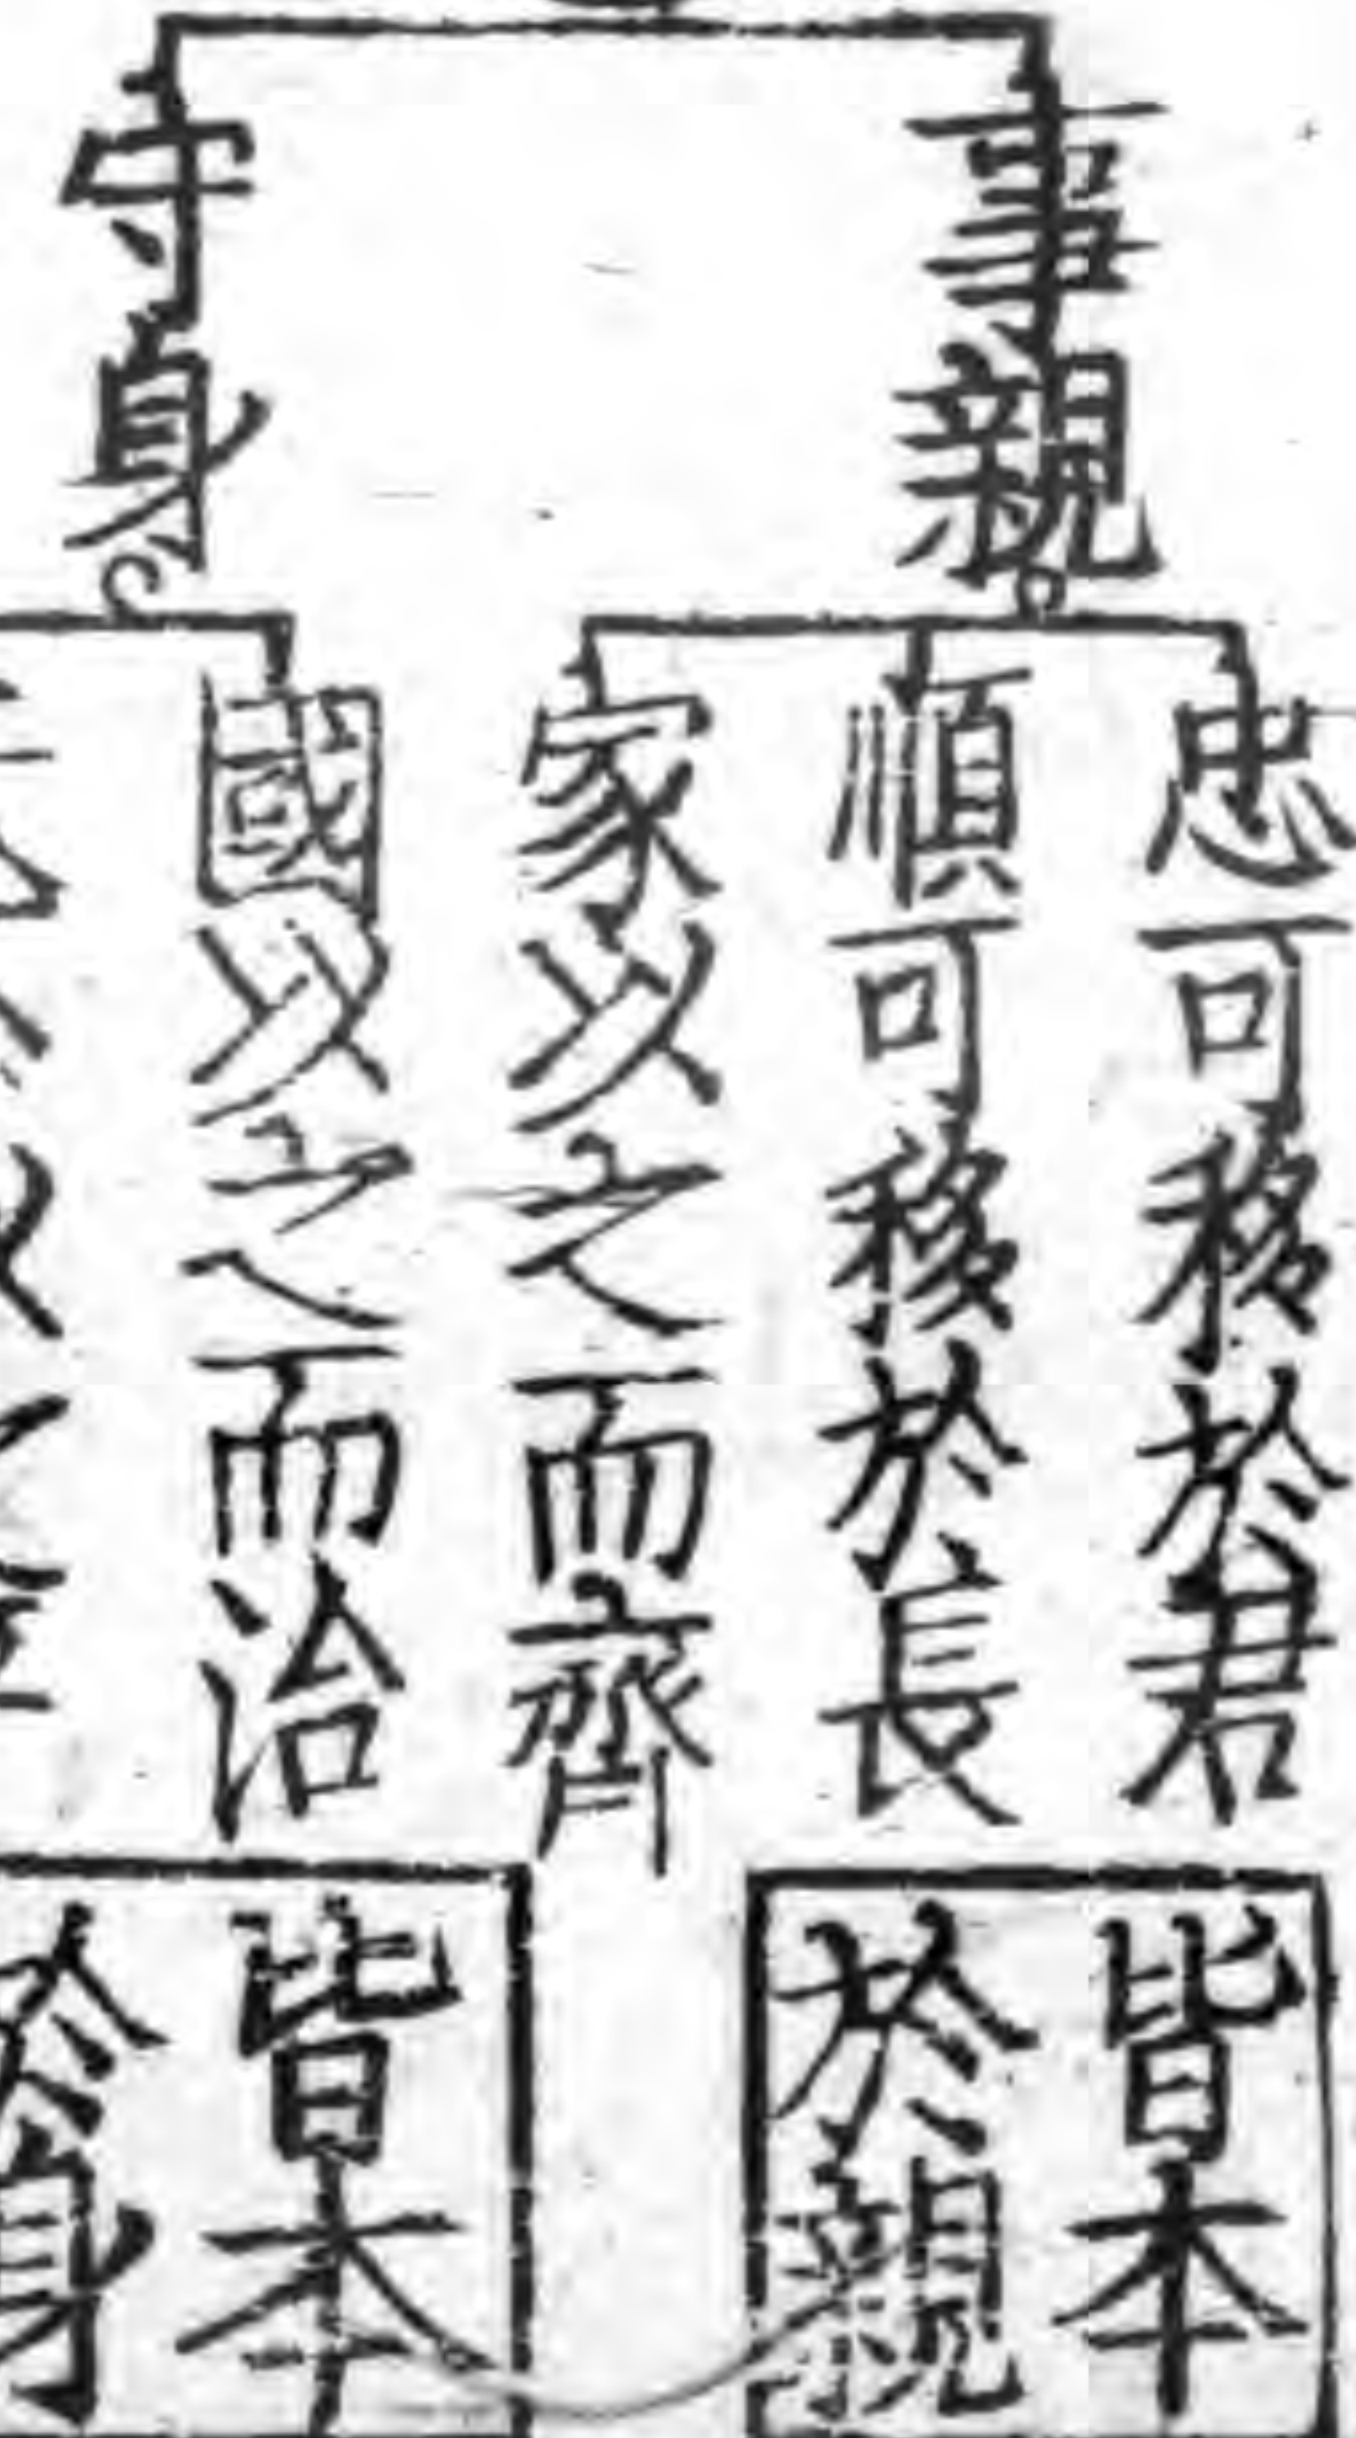 事親
忠可移於君
順可移於長
皆本
於親
守身
家以之而齊
國以之而治
皆本
於身